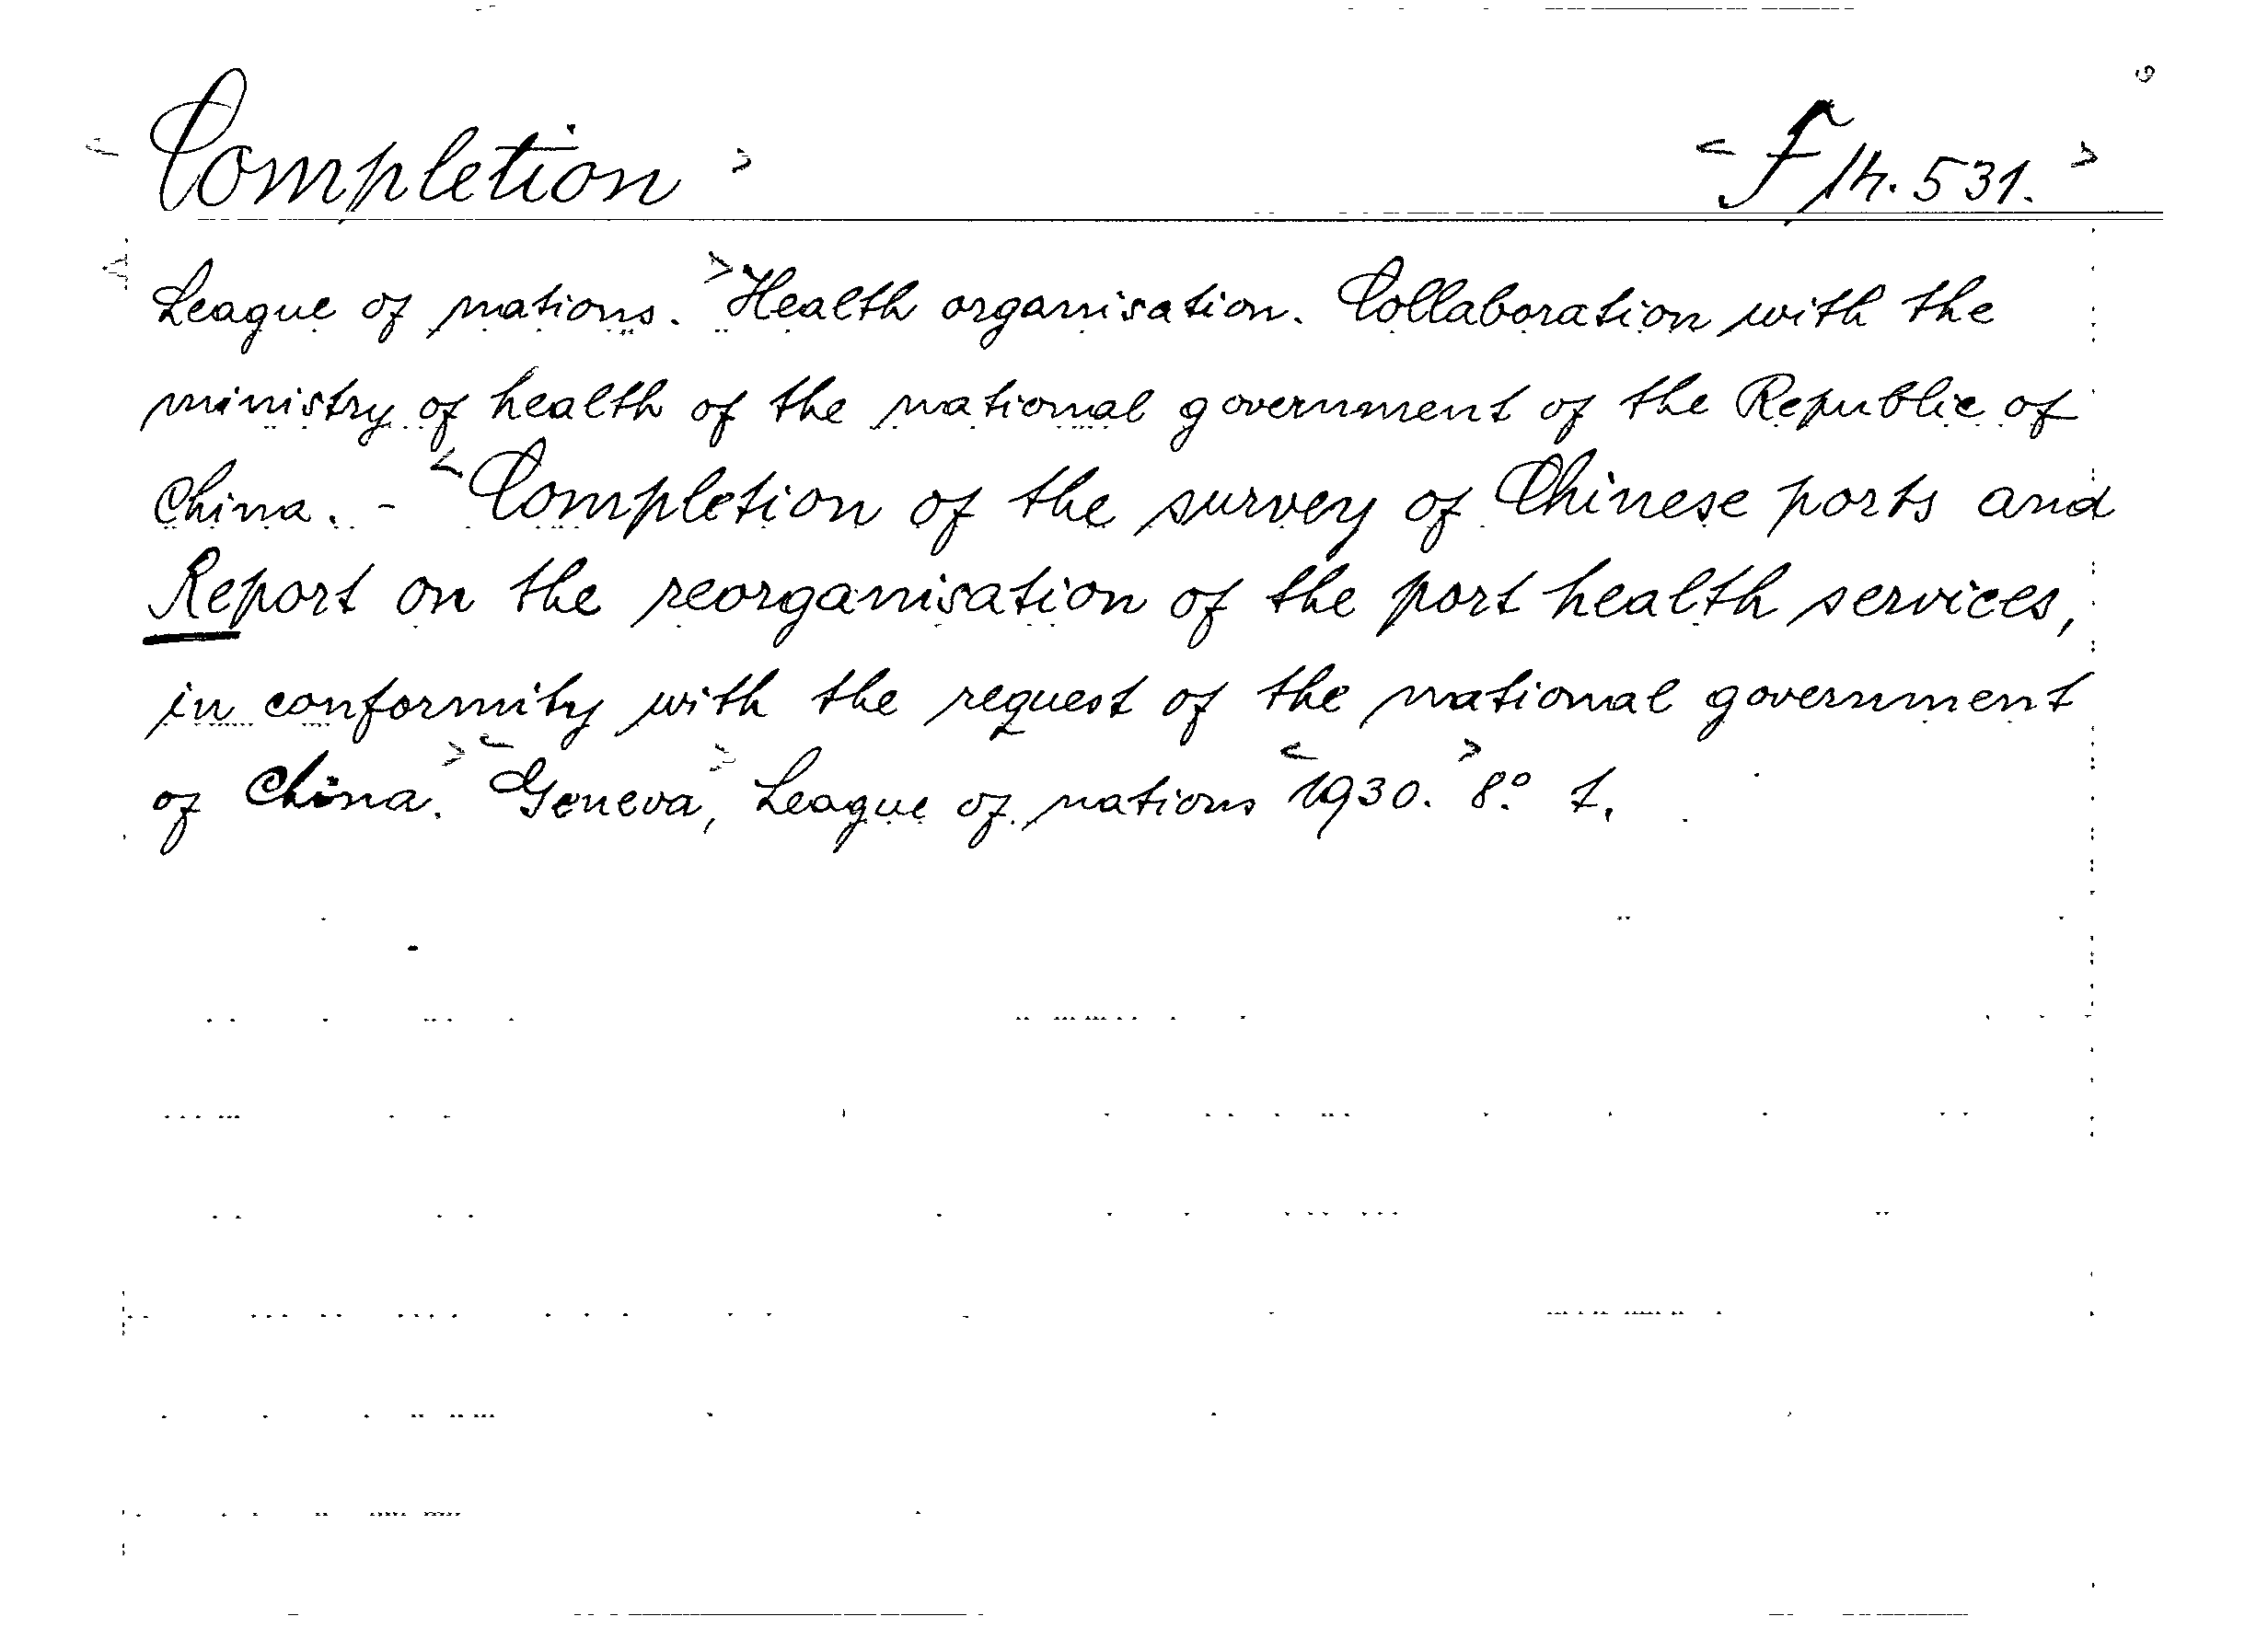 Completion F 14.531.
League of nations. Health organisation. Collaboration with the
ministry of health of the national government of the Republic of
China. - Completion of the survey of Chinese ports and
Report on the reorganisation of the port health services,
in conformity with the request of the national government
of China. Geneva, League of nations 1930. 8º.